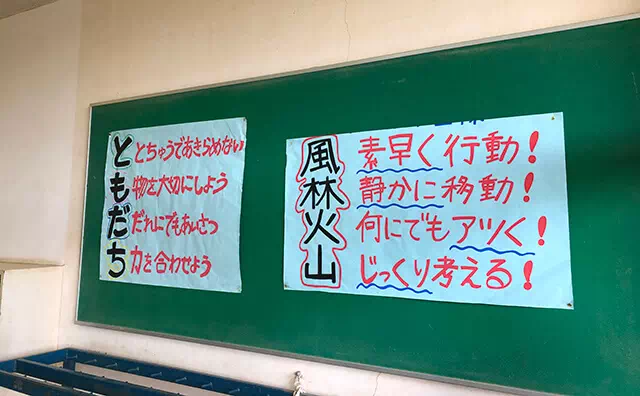 と とちゅうであきらめない
も 物を大切にしよう
だ だれにでもあいさつ
ち 力を合わせよう
風 素早く行動!
林 静かに移動!
火 何にでもアツく!
山 じっくり考える!